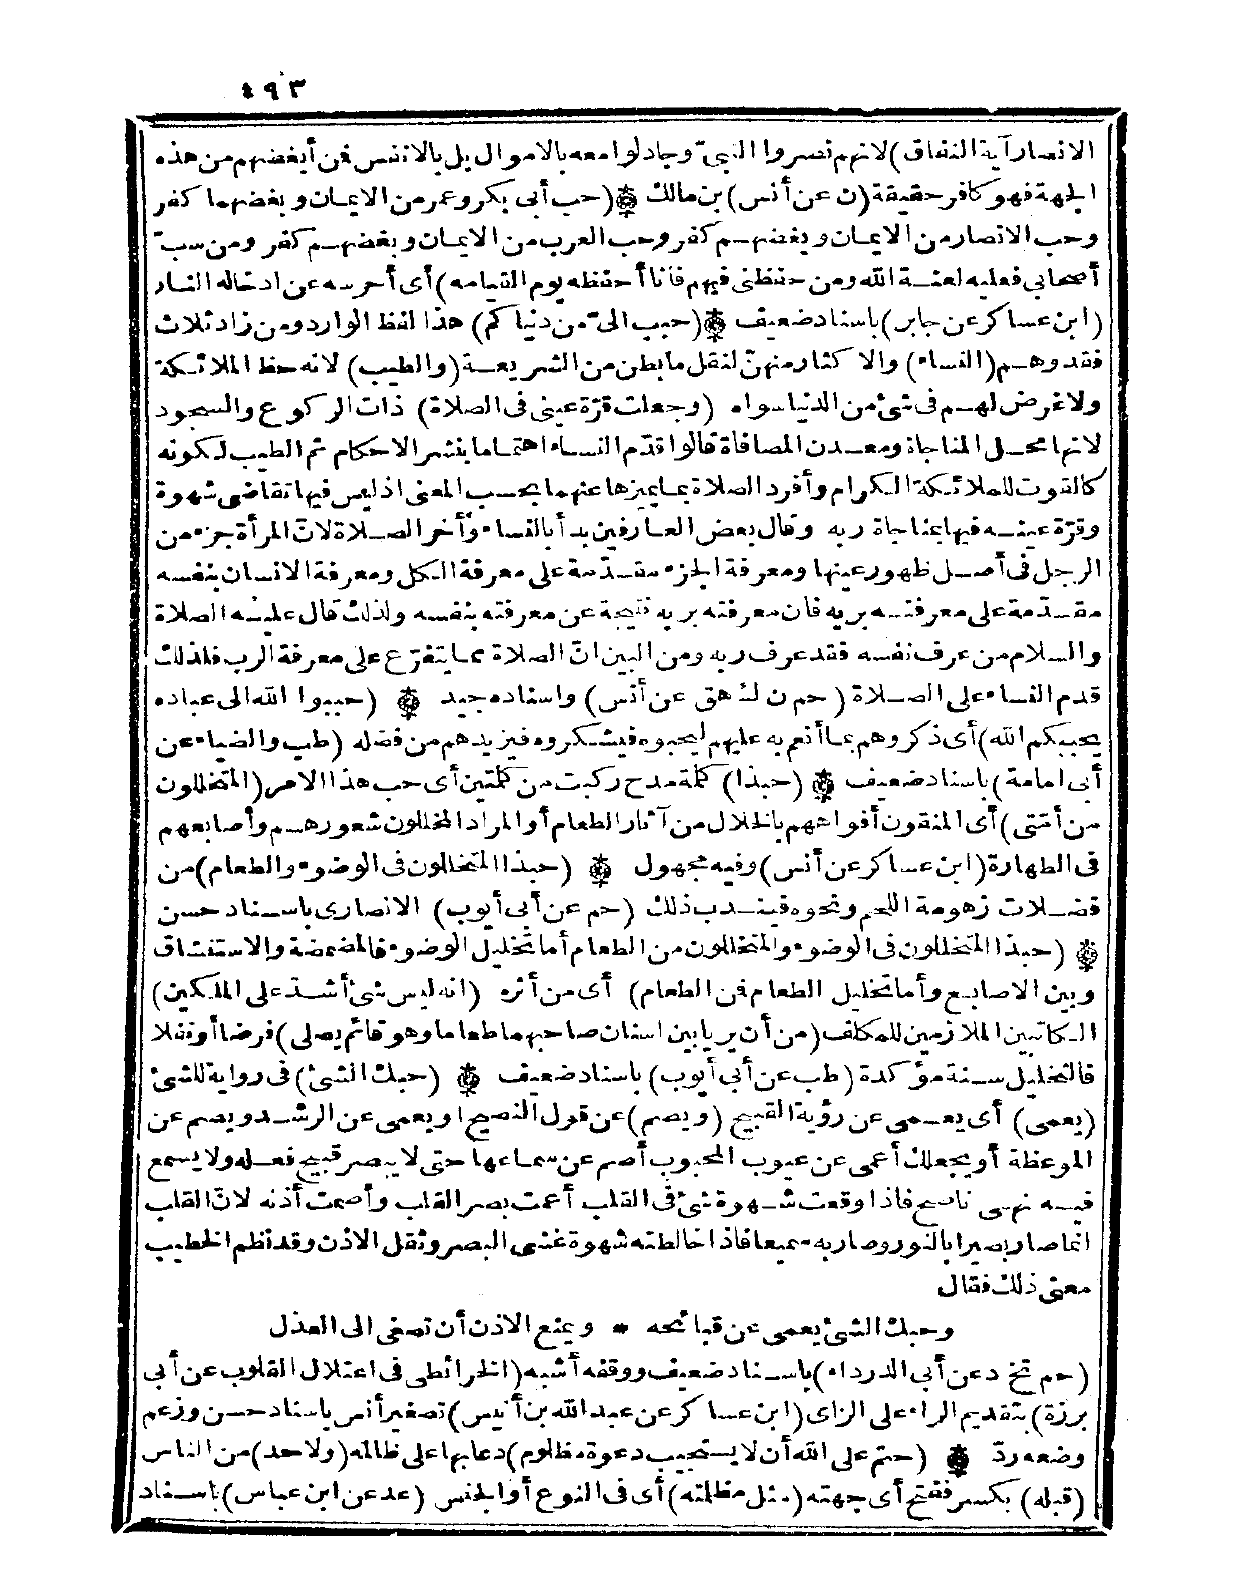 ٤٩٣
الانصار آية النفاق) لانهم نصروا النبيّ وجادلوا معه بالاموال بل بالانفس فمن أبغضهم من هذه
الجهة فهو كافر حقيقة (ن عن أنس) بن مالك ۞ (حب أبي بكر وعمر من الايمان وبغضهما كفر
وحب الانصار من الايمان وبغضهم كفر وحب العرب من الايمان وبغضهم كفر ومن سبّ
أصحابي فعليه لعنة الله ومن حفظنى فيهم فأنا أحفظه يوم القيامه) أى أحرسه عن ادخاله النار
(ابن عساكر عن جابر) باسناد ضعيف ۞ (حبب الىّ من دنياكم) هذا لفظ الوارد ومن زاد ثلاث
فقد وهم (النساء) والاكثار منهنّ لنقل ما بطن من الشريعة (والطيب) لانه حظ الملائكة
ولا غرض لهم فى شئ من الدنيا سواه (وجعلت قرّة عينى فى الصلاة) ذات الركوع والسجود
لانها محل المناجاة ومعدن المصافاة قالوا قدّم النساء اهتماما بنشر الاحكام ثم الطيب لكونه
كالقوت للملائكة الكرام وأفرد الصلاة بما يميزها عنهما بحسب المعنى اذ ليس فيها تقاضى شهوة
وقرّة عينه فيها بمناجاة ربه وقال بعض العارفين بدأ بالنساء وأخر الصلاة لانّ المرأة جزء من
الرجل فى أصل ظهور عينها ومعرفة الجزء مقدّمة على معرفة الكل ومعرفة الانسان بنفسه
مقدمة على معرفته بربه فان معرفته بربه نتيجة عن معرفته بنفسه ولذلك قال عليه الصلاة
والسلام من عرف نفسه فقد عرف ربه ومن البين انّ الصلاة مما يتفرّع على معرفة الرب فلذلك
قدم النساء على الصلاة (حم ن ك هق عن أنس) واسناده جيد ۞ (حببوا الله الى عباده
يحببكم الله) أى ذكروهم بما أنعم به عليهم ليحبوه فيشكروه فيزيدهم من فضله (طب والضياء عن
أبى امامة) باسناد ضعيف ۞ (حبذا) كلمة مدح ركبت من كلمتين أى حب هذا الامر (المتخللون
من أمّتى) أى المنقون أفواههم بالخلال من آثار الطعام أو المراد المخللون شعورهم وأصابعهم
فى الطهارة (ابن عساكر عن أنس) وفيه مجهول ۞ (حبذا المتخللون فى الوضوء والطعام) من
فضلات زهومة اللحم ونحوه فيندب ذلك (حم عن أبى أيوب) الانصارى باسناد حسن
۞ (حبذا المتخللون فى الوضوء والمتخللون من الطعام أما تخليل الوضوء فالمضمضة والاستنشاق
وبين الاصابع وأما تخليل الطعام فمن الطعام) أى من أثره (انه ليس شئ أشدّ على الملكين)
الكاتبين الملازمين للمكلف (من أن يريا بين اسنان صاحبهما طعاما وهو قائم يصلى) فرضا أو نفلا
فالتخليل سنة مؤكدة (طب عن أبى أيوب) باسناد ضعيف ۞ (حبك الشئ) فى رواية للشئ
(يعمى) أى يعمى عن رؤية القبيح (ويصم) عن قول النصيح أو يعمى عن الرشد ويصم عن
الموعظة أو يجعلك أعمى عن عيوب المحبوب أصم عن سماعها حتى لا يبصر قبيح فعله ولا يسمع
فيه نهى ناصح فاذا وقعت شهوة شئ فى القلب أعمت بصر القلب وأصمت أذنه لانّ القلب
انما صار بصيرا بالنور وصار به سميعا فاذا خالطته شهوة غشى البصر وثقل الاذن وقد نظم الخطيب
معنى ذلك فقال
وحبك الشئ يعمى عن قبائحه * ويمنع الاذن أن تصغى الى العذل
(حم تخ د عن أبى الدرداء) باسناد ضعيف ووقفه أشبه (الخرائطى فى اعتلال القلوب عن أبى
برزة) بتقديم الراء على الزاى (ابن عساكر عن عبد الله بن أنيس) تصغير أنس باسناد حسن وزعم
وضعه ردّ ۞ (حتم على الله أن لا يستجيب دعوة مظلوم) دعا بها على ظالمه (ولاحد) من الناس
(قبله) بكسر ففتح أى جهته (مثل مظلمته) أى فى النوع أو الجنس (عد عن ابن عباس) باسناد